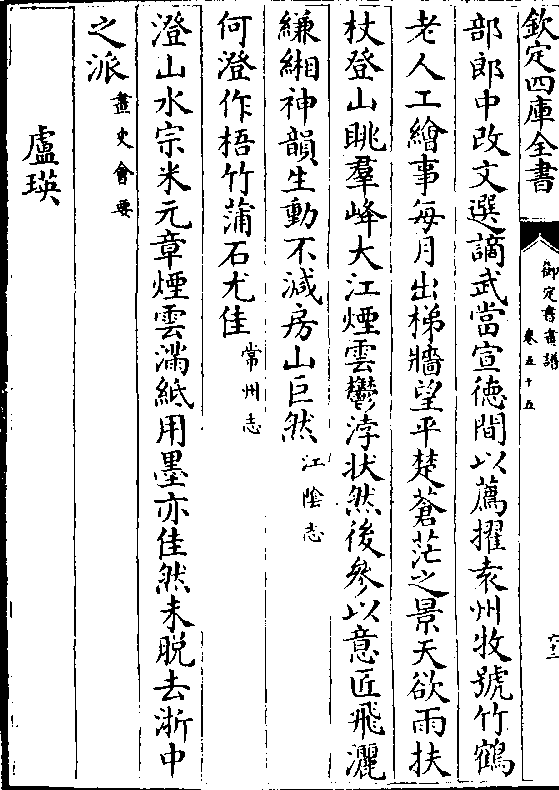 欽定四庫全書
御定書畫譜
卷五十五
六十二
部郎中改文選謫武當宣徳間以薦擢袁州牧號竹鶴
老人工繪事每月出梯牆望平楚蒼茫之景天欲雨扶
杖登山眺羣峰大江煙雲鬱浡狀然後參以意匠飛灑
縑緗神韻生動不減房山巨然江隂志
何澄作梧竹蒲石尤佳常州志
澄山水宗米元章煙雲滿紙用墨亦佳然未脱去浙中
之派畫史會要
盧瑛